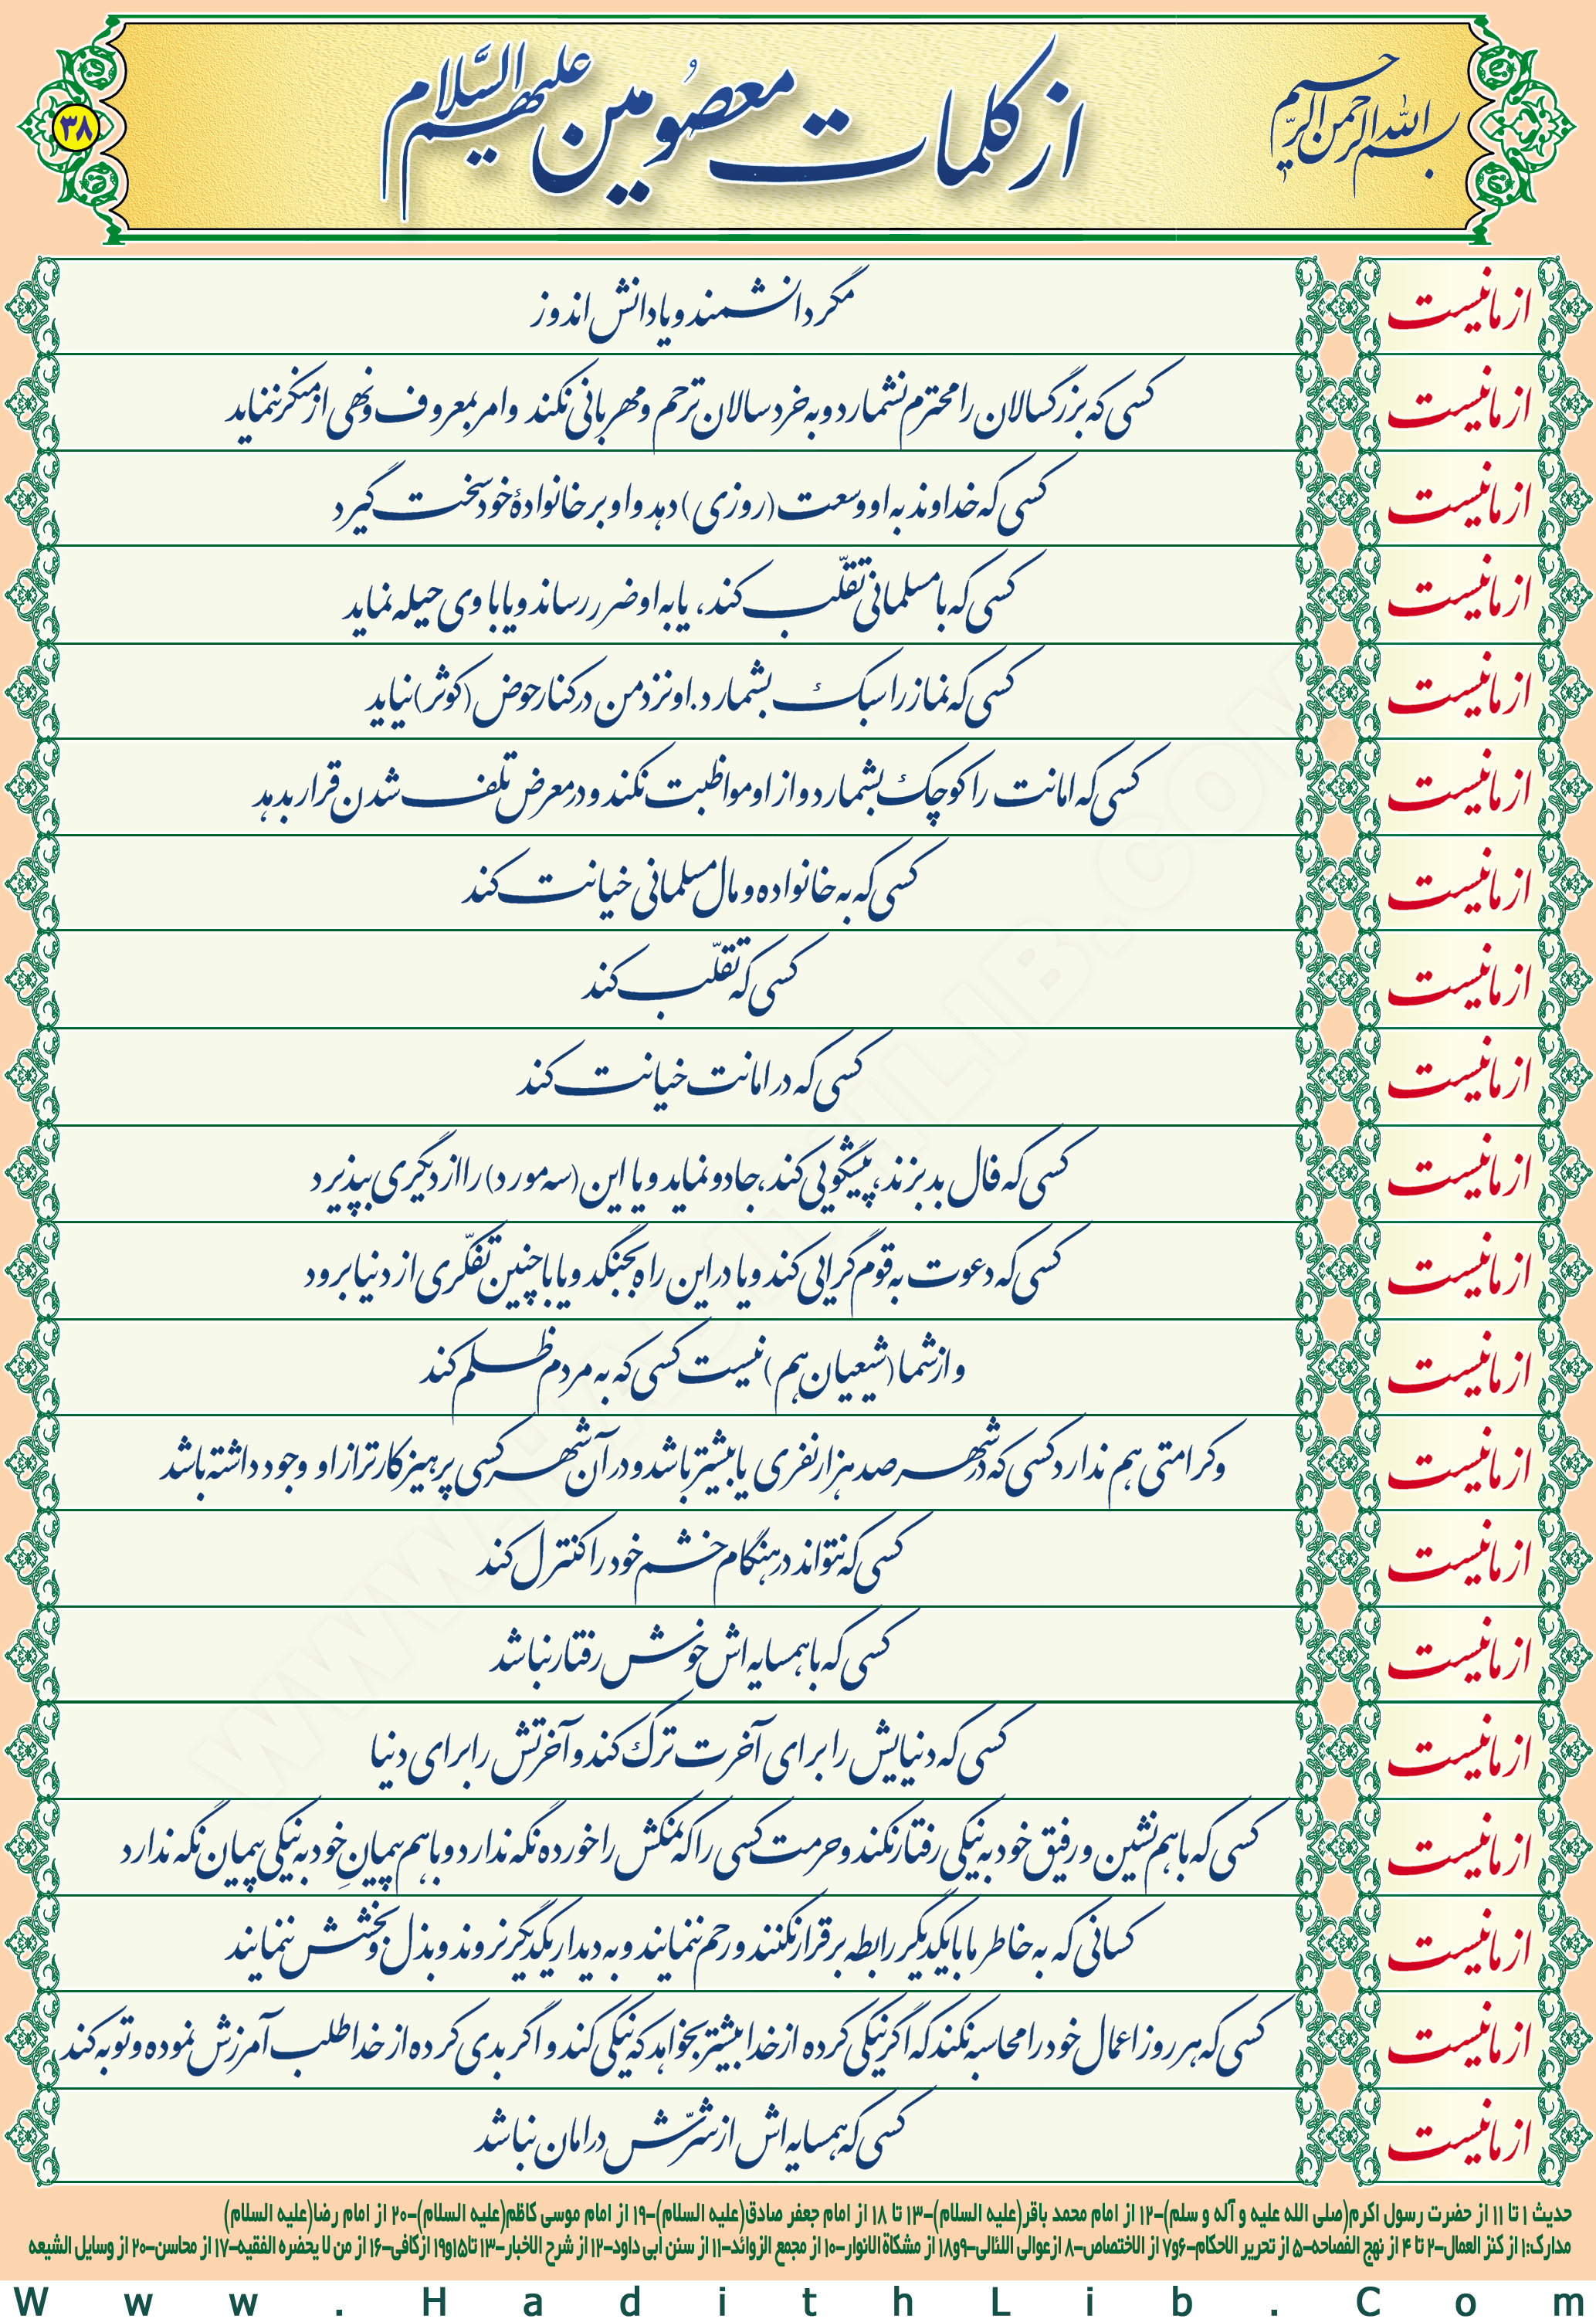 بسم الله الرحمن الرحیم
از کلمات معصومین علیهم السَّلام
۳۸
از ما نیست مگر دانشمند و یا دانش اندوز
از ما نیست کسی که بزرگسالان را محترم نشمارد و به خردسالان ترحم و مهربانی نکند و امر بمعروف و نهی از منکر ننماید
از ما نیست کسی که خداوند به او وسعت (روزی) دهد و او بر خانوادۀ خود سخت گیرد
از ما نیست کسی که با مسلمانی تقلّب کند، یا به او ضرر رساند و یا با وی حیله نماید
از ما نیست کسی که نماز را سبک بشمارد. او نزد من در کنار حوض (کوثر) نیاید
از ما نیست کسی که امانت را کوچک بشمارد و از او مواظبت نکند و در معرض تلف شدن قرار بدهد
از ما نیست کسی که به خانواده و مال مسلمانی خیانت کند
از ما نیست کسی که تقلّب کند
از ما نیست کسی که در امانت خیانت کند
از ما نیست کسی که فال بد بزند، پیشگویی کند، جادو نماید و یا این (سه مورد) را از دیگری بپذیرد
از ما نیست کسی که دعوت به قوم گرایی کند و یا در این راه بجنگد و یا با چنین تفکّری از دنیا برود
از ما نیست و از شما (شیعیان هم) نیست کسی که به مردم ظلم کند
از ما نیست و کرامتی هم ندارد کسی که در شهر صد هزار نفری یا بیشتر باشد و در آن شهر کسی پرهیزکارتر از او وجود داشته باشد
از ما نیست کسی که نتواند در هنگام خشم خود را کنترل کند
از ما نیست کسی که با همسایه اش خوش رفتار نباشد
از ما نیست کسی که دنیایش را برای آخرت ترک کند و آخرتش را برای دنیا
از ما نیست کسی که با هم نشین و رفیق خود به نیکی رفتار نکند و حرمت کسی را که نمکش را خورده نگه ندارد و با هم پیمانِ خود به نیکی پیمان نگه ندارد
از ما نیست کسانی که به خاطر ما با یکدیگر رابطه برقرار نکنند و رحم ننمایند و به دیدار یکدیگر نروند و بذل و بخشش ننمایند
از ما نیست کسی که هر روز اعمال خود را محاسبه نکند که اگر نیکی کرده از خدا بیشتر بخواهد که نیکی کند و اگر بدی کرده از خدا طلب آمرزش نموده و توبه کند
از ما نیست کسی که همسایه اش از شرّش در امان نباشد
حدیث ۱ تا ۱۱ از حضرت رسول اکرم(صلی الله علیه و آله و سلم)-۱۲ از امام محمد باقر(علیه السلام)-۱۳ تا ۱۸ از امام جعفر صادق(علیه السلام)-۱۹ از امام موسی کاظم(علیه السلام)-۲۰ از امام رضا(علیه السلام)
مدارک:۱ از کنز العمال-۲ تا ۴ از نهج الفصاحه-۵ از تحریر الاحکام-۶و۷ از الاختصاص-۸ ازعوالی اللئالی-۹و۱۸ از مشکاةالانوار-۱۰ از مجمع الزوائد-۱۱ از سنن ابی داود-۱۲ از شرح الاخبار-۱۳ تا۱۵و۱۹ ازکافی-۱۶ از من لا یحضره الفقیه-۱۷ از محاسن-۲۰ از وسایل الشیعه
Www.HadithLib.Com
WWW.HADITHLIB.COM